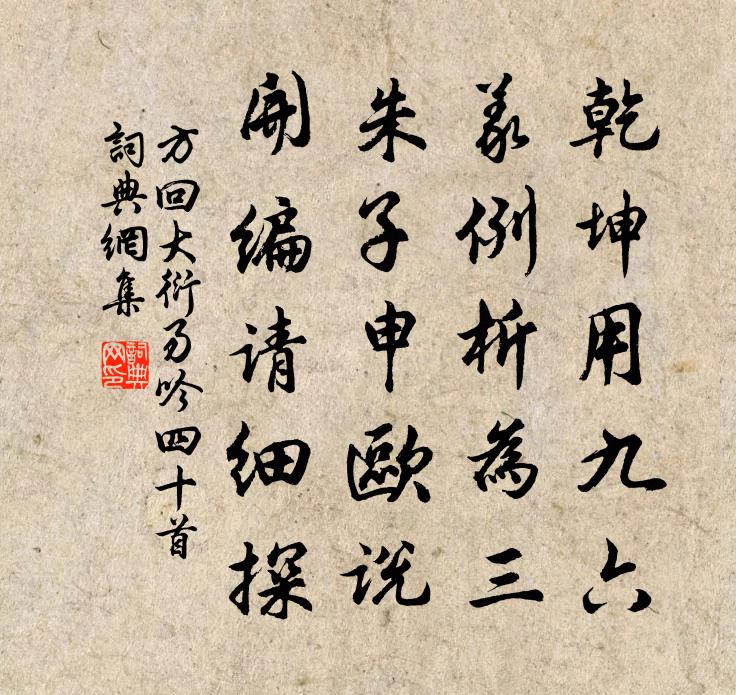 乾坤用九六
義例析為三
朱子申歐说
開編请细探
方回大衍易吟四十首
詞典網集
詞典网印